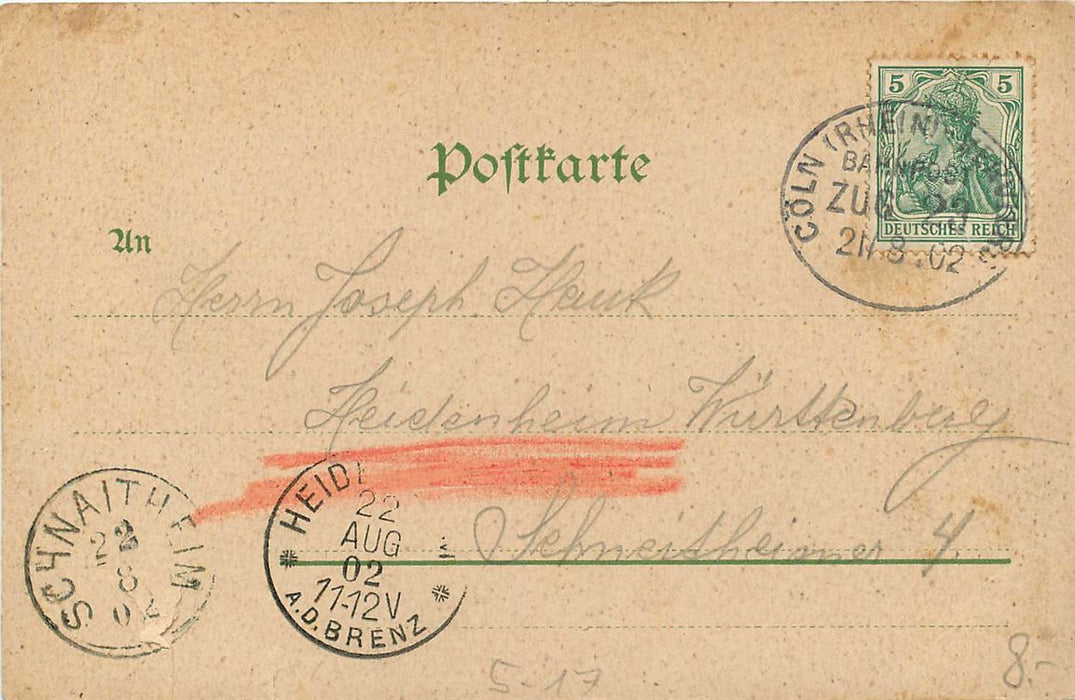 5 5
DEUTSCHES REICH
CÖLN (RHEIN)
BAHNPOST
ZUG 23
21.8.02
Poſtkarte
An
Herrn Joseph Hauk
Heidenheim Württenberg
Schneitheimer 4.
SCHNAITHEIM
22
8
02
HEID
22
AUG
02
11-12V
A.D. BRENZ
5-17
8.-